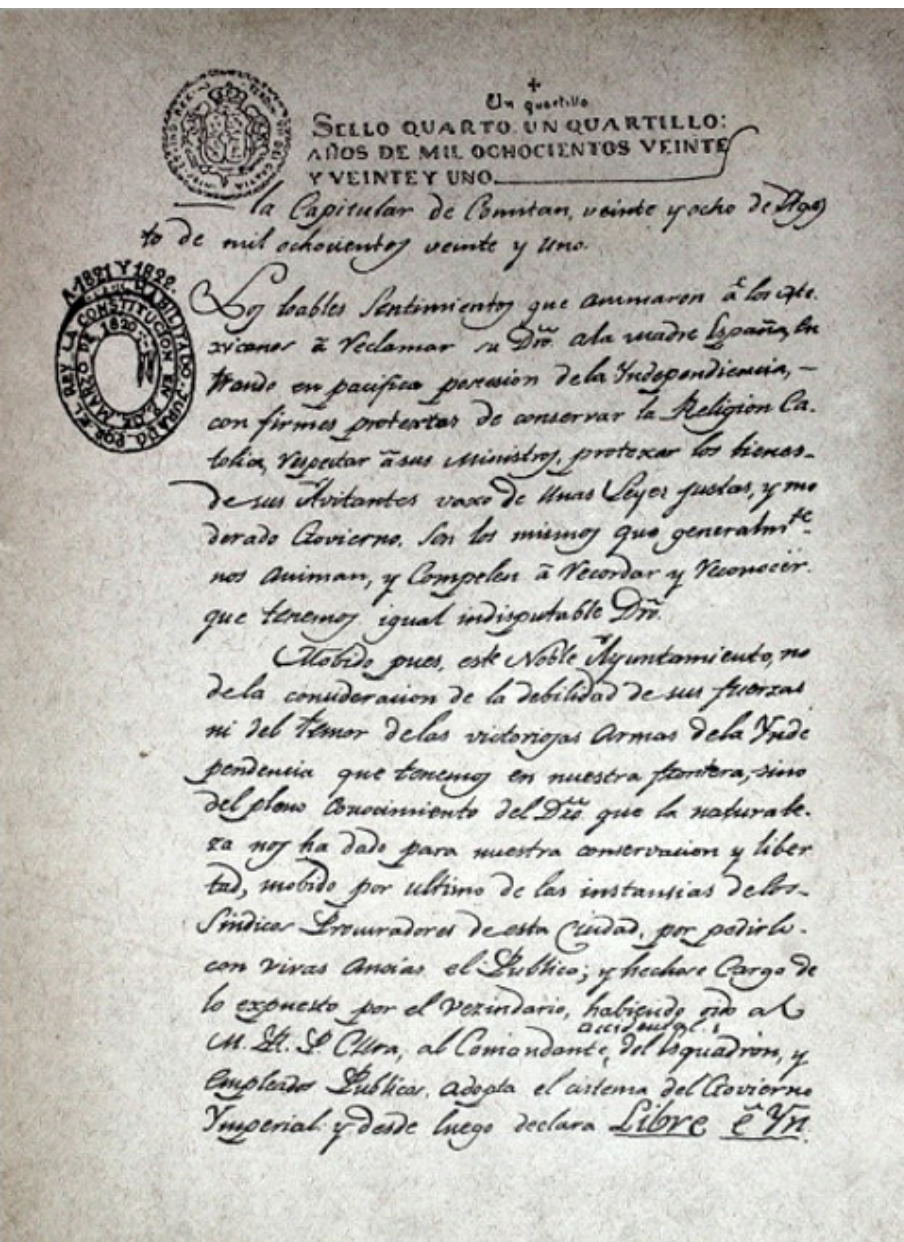 Un quartillo
SELLO QUARTO. UN QUARTILLO:
AÑOS DE MIL OCHOCIENTOS VEINTE
Y VEINTE Y UNO.
la Capitular de Comitan, veinte y ocho de Ago
to de mil ochocientos veinte y uno.
A 1821 Y 1822.
HABILITADO, JURADO POR EL REY LA CONSTITUCION EN 9 DE MARZO DE 1820
Los loables Sentimientos que animaron â los Me
xicanos â Reclamar su Dro. ala madre España, En
trando en pacifica posesion dela Yndependiencia, -
con firmes protextas de conservar la Religion Ca-
tolica, Respectar âsus Ministros, protexar los bienes-
de sus Avitantes vaxo de Unas Leyes justas, y mo
derado Govierno. Son los mismos que generalmte.
nos Animan, y Compelen â Recordar y Reconocer.
que tenemos igual indisputable Dro.
Mobido pues, este Noble Ayuntamiento, no
dela consideracion de la debilidad de sus fuerzas
ni del temor delas victoriosas Armas dela Ynde
pendencia que tenemos en nuestra frontera, sino
del pleno Conocimiento del Dro. que la naturale-
za nos ha dado para nuestra conservacion y liber
tad, mobido por ultimo de las instansias delos-
Sindicos Procuradores de esta Ciudad, por pedirlo-
con vivas Ansias el Publico; y hechose Cargo de
lo expuesto por el Vezindario, habiendo oido al
M. R. P. CUra, al Comandante accidental, del esquadron, y
Empleados Publicos, adopta el cistema del Govierno
Ymperial y desde luego declara Libre ê Yn